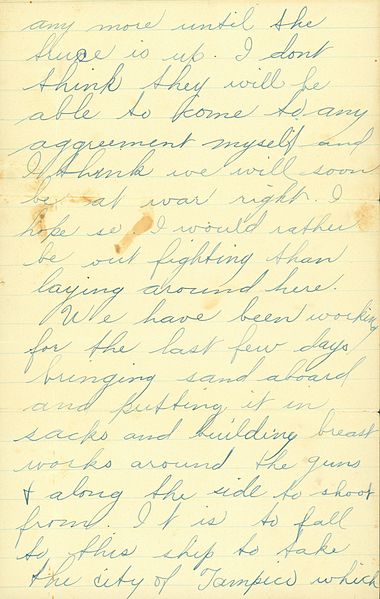 any more until the
truce is up. I dont
think they will be
able to kome to any
aggreement myself and
I think we will soon
be at war right. I
hope so I would rather
be out fighting than
laying around here.
We have been working
for the last few days
bringing sand aboard
and putting it in
sacks and building breast
works around the guns
& along the side to shoot
from. It is to fall
to this ship to take
the city of Tampico which